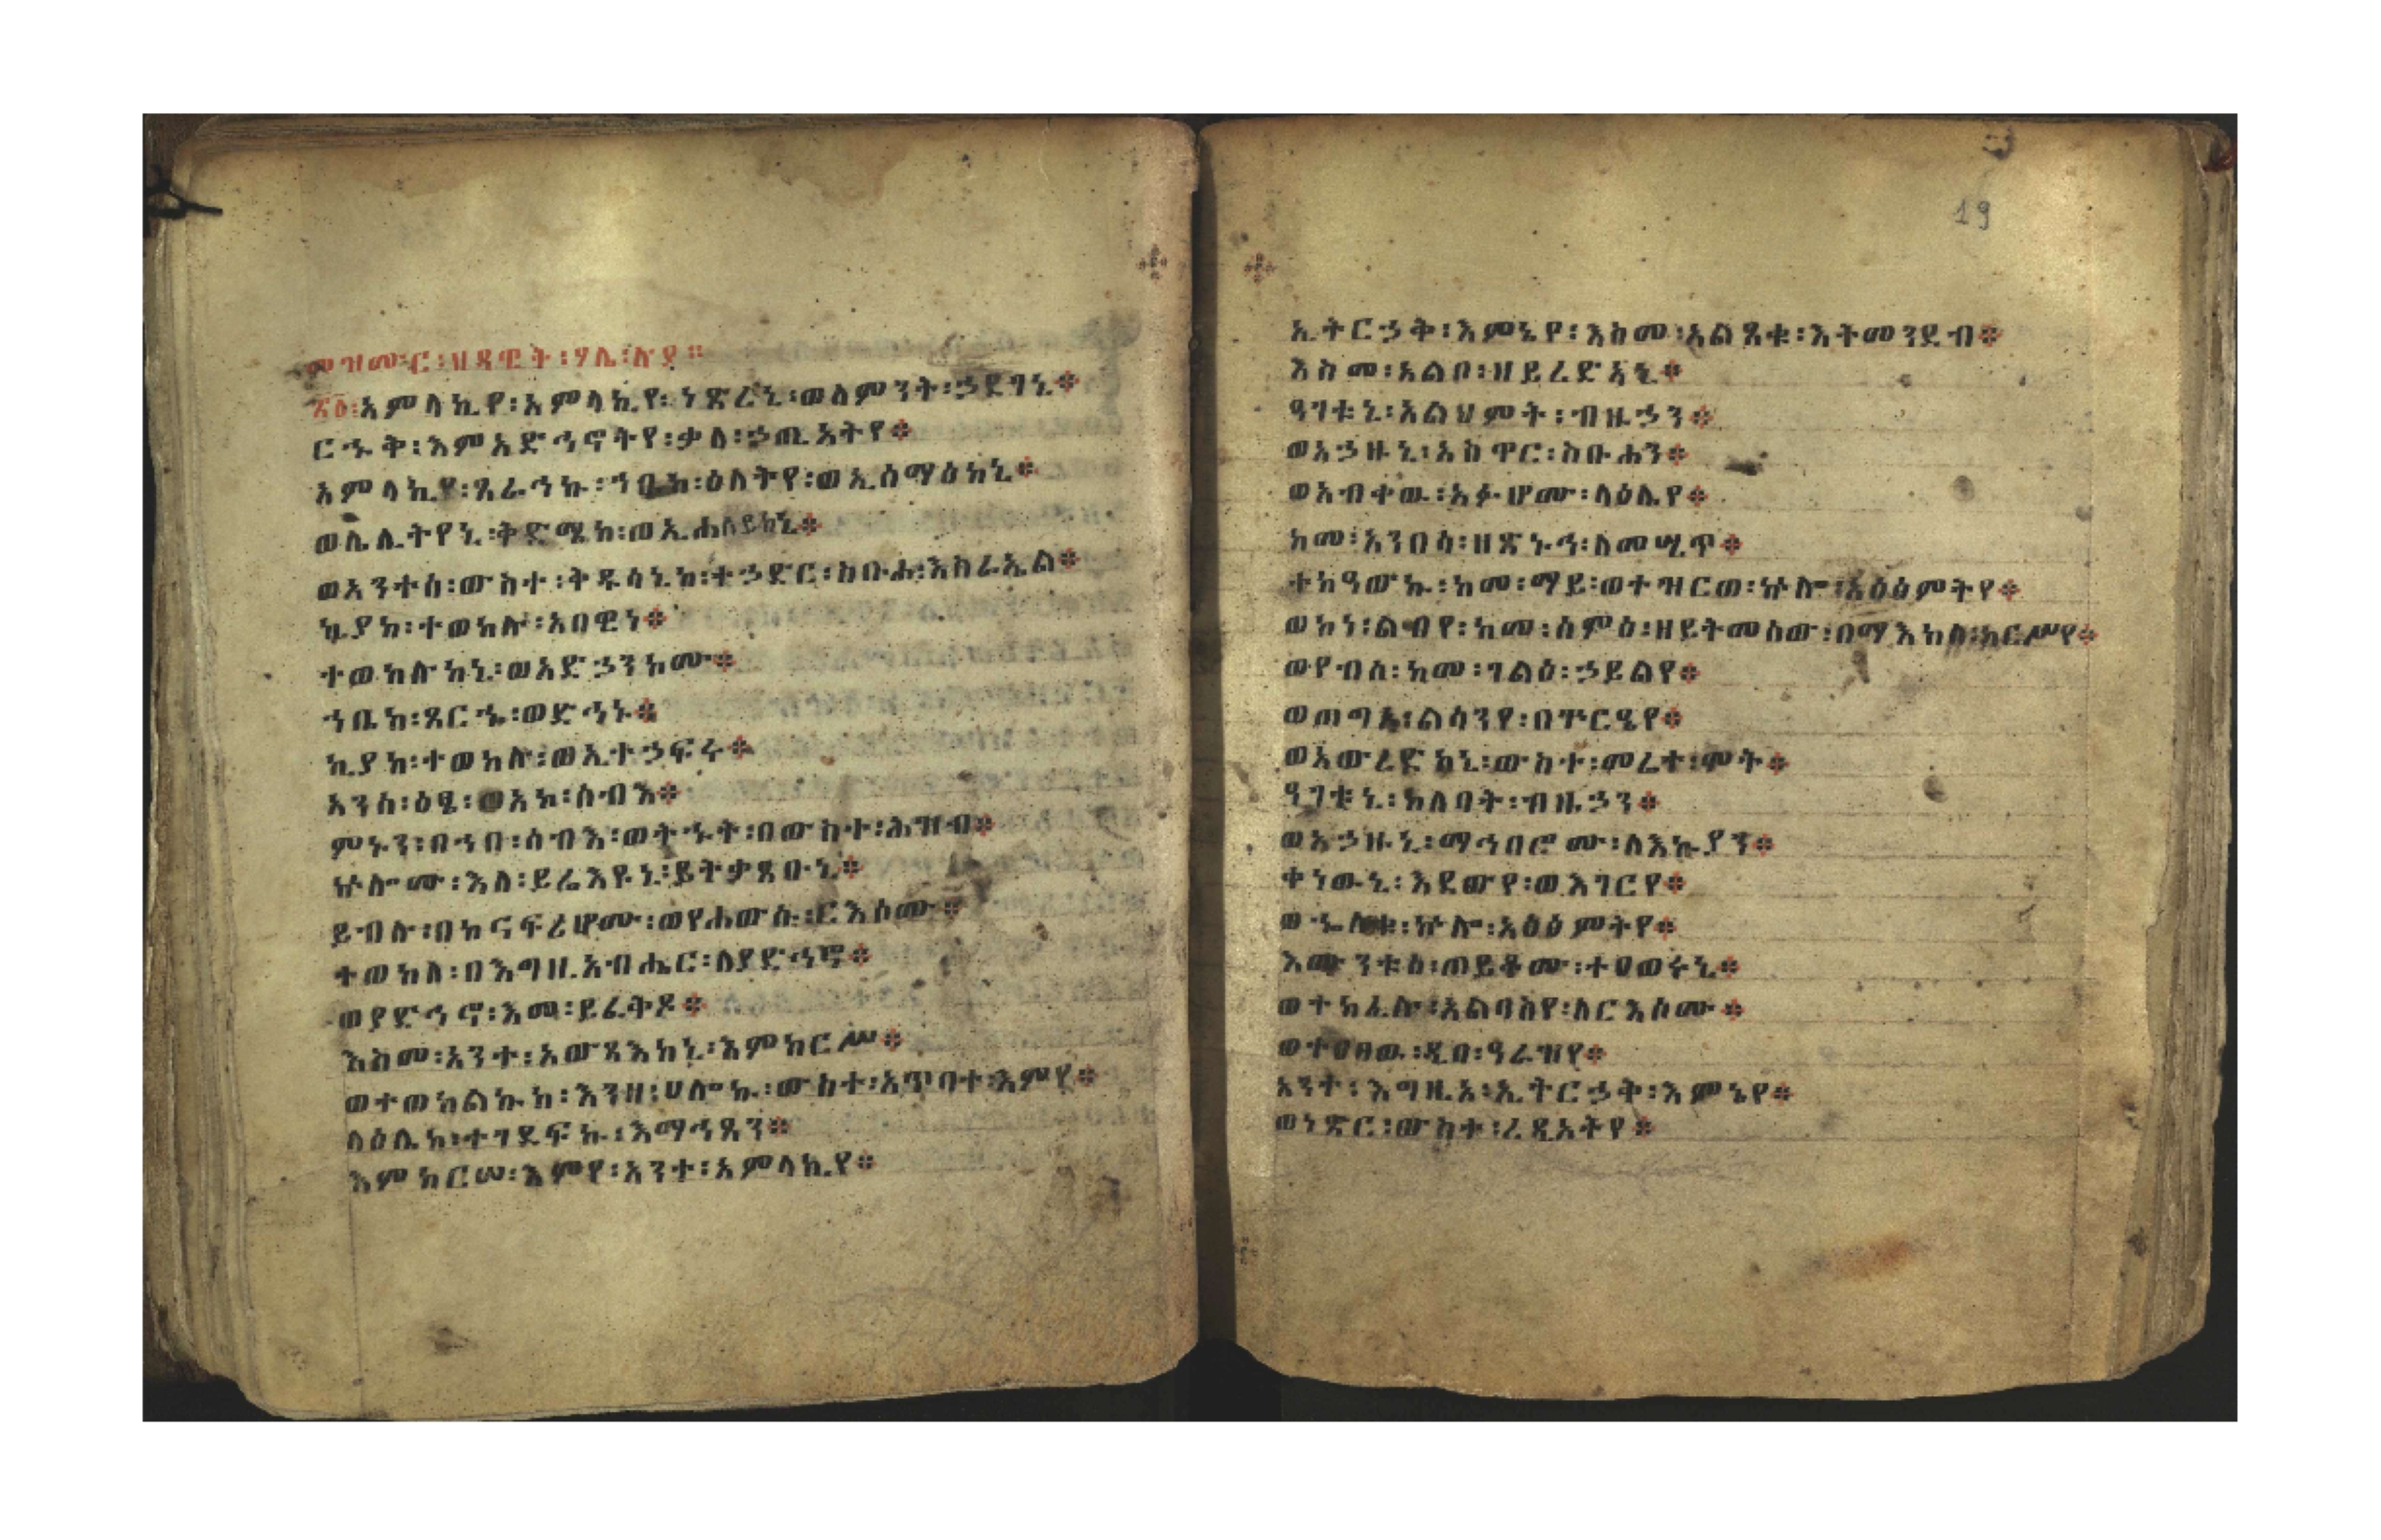 መዝሙር፡ዘዳዊት፡ሃሌ፡ሉያ፡፡
አምላኪየ፡አምላኪየ፡ነጽረኒ፡ወለምንት፡ኃደገኒ፨
ርኁቅ፡እምአድኅኖትየ፡ቃለ፡ኃጢአትየ፨
አምላኪየ፡ጸራኅኩ፡ኀቤከ፡ዕለትየ፡ወኢሰማዕከኒ፨
ወሌሊትየኒ፡ቅድሜከ፡ወኢሐለይከኒ፨
ወአንተሰ፡ውስተ፡ቅዱሳኒከ፡ተኃድር፡ስቡሐ፡እስራኤል፨
ኪያከ፡ተወከሉ፡አበዊነ፨
ተወከሉከኒ፡ወአድኃንከሙ፨
ኀቤከ፡ጸርኁ፡ወድኅኑ፨
ኪያከ፡ተወከሉ፡ወኢተኃፍሩ፨
አንሰ፡ዕፄ፡ወአኮ፡ሰብእ፨
ምኑን፡በኀበ፡ሰብእ፡ወትኁት፡በውስተ፡ሕዝብ፨
ኵሎሙ፡እለ፡ይሬእዩኒ፡ይትቃጸቡኒ፨
ይብሉ፡በከናፍሪሆሙ፡ወየሐውሱ፡ርእሶሙ፨
ተወከለ፡በእግዚአብሔር፡ለያድኅኖ፨
ወያድኅኖ፡እመ፡ይፈቅዶ፨
እስመ፡አንተ፡አውጻእከኒ፡እምከርሥ፨
ወተወከልኩከ፡እንዘ፡ሀሎኩ፡ውስተ፡አጥባተ፡እምየ፨
ላዕሌከ፡ተገደፍኩ፡እማኅጸን፨
እምከርሠ፡እምየ፡አንተ፡አምላኪየ፨
19
ኢትርኃቅ፡እምኔየ፡እስመ፡አልጸቁ፡እትመንደብ፨
እስመ፡አልቦ፡ዘይረድአኒ፨
ዓገቱኒ፡አልህምት፡ብዙኃን፨
ወአኃዙኒ፡አስዋር፡ስቡሐን፨
ወአብቀዉ፡አፉሆሙ፡ላዕሌየ፨
ከመ፡አንበሳ፡ዘጽኑኅ፡ለመሢጥ፨
ተከዓውኩ፡ከመ፡ማይ፡ወተዝርወ፡ኵሎ፡አዕፅምትየ፨
ወኮነ፡ልብየ፡ከመ፡ሰምዕ፡ዘይትመሰው፡በማእከለ፡ከርሥየ፨
ወየብሰ፡ከመ፡ገልዕ፡ኃይልየ፨
ወጠግዐ፡ልሳንየ፡በጕርዔየ፨
ወአውረድከኒ፡ውስተ፡መሬተ፡ሞት፨
ዓገቱኒ፡ከለባት፡ብዙኃን፨
ወአኃዙኒ፡ማኅበሮሙ፡ለእኩያን፨
ቀነውኒ፡እደውየ፡ወእገርየ፨
ወኈለቁ፡ኵሎ፡አዕፅምትየ፨
እሙንቱሰ፡ጠይቆሙ፡ተዐወሩኒ፨
ወተከፈሉ፡አልባስየ፡ለርእሶሙ፨
ወተዐፀዉ፡ዲበ፡ዓራዝየ፨
አንተ፡እግዚአ፡ኢትርኃቅ፡እምኔየ፨
ወነጽር፡ውስተ፡ረዲአትየ፨